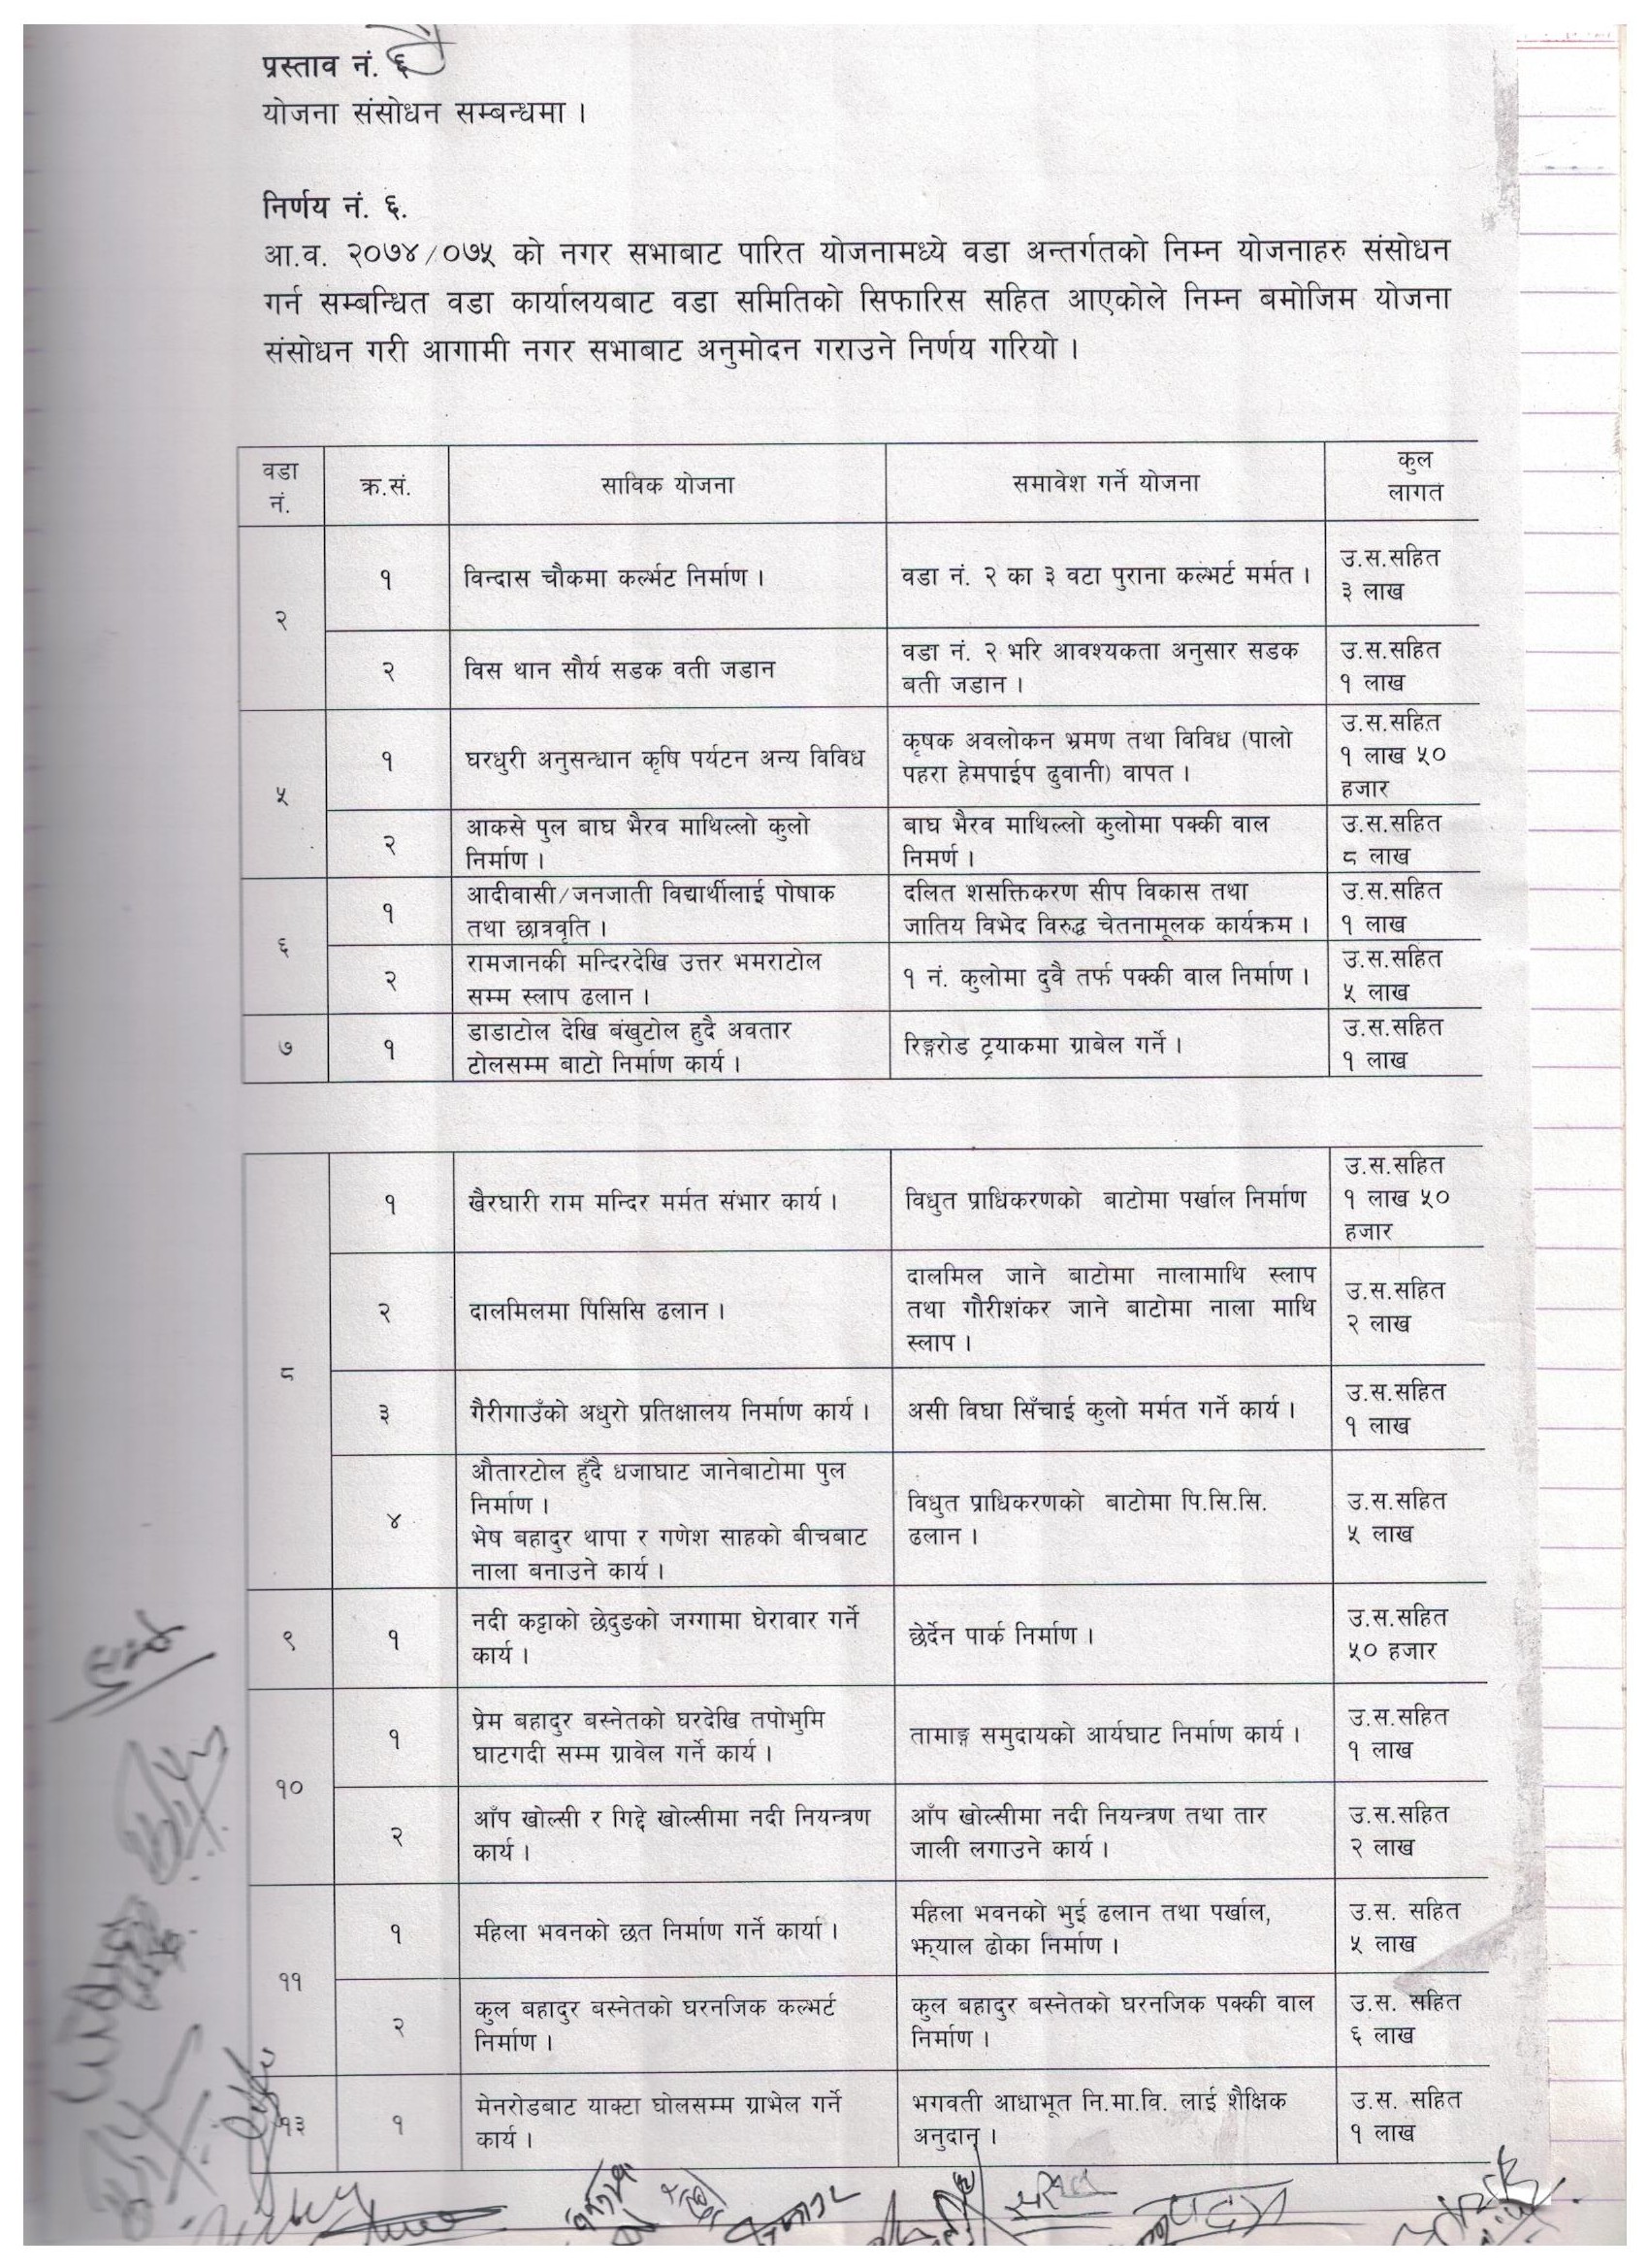 प्रस्ताव नं. ६
योजना संसोधन सम्बन्धमा ।
निर्णय नं. ६.
आ.व. २०७४/०७५ को नगर सभाबाट पारित योजनामध्ये वडा अन्तर्गतको निम्न योजनाहरु संसोधन
गर्न सम्बन्धित वडा कार्यालयबाट वडा समितिको सिफारिस सहित आएकोले निम्न बमोजिम योजना
संसोधन गरी आगामी नगर सभाबाट अनुमोदन गराउने निर्णय गरियो ।
वडा
नं.
क्र.सं.
साविक योजना
समावेश गर्ने योजना
कुल
लागत
२
१
विन्दास चौकमा कर्ल्भट निर्माण ।
वडा नं. २ का ३ वटा पुराना कल्भर्ट मर्मत ।
उ.स.सहित
३ लाख
२
विस थान सौर्य सडक वती जडान
वडा नं. २ भरि आवश्यकता अनुसार सडक
बती जडान ।
उ.स.सहित
१ लाख
५
१
घरधुरी अनुसन्धान कृषि पर्यटन अन्य विविध
कृषक अवलोकन भ्रमण तथा विविध (पालो
पहरा हेमपाईप ढुवानी) वापत ।
उ.स.सहित
१ लाख ५०
हजार
२
आकसे पुल बाघ भैरव माथिल्लो कुलो
निर्माण ।
बाघ भैरव माथिल्लो कुलोमा पक्की वाल
निमर्ण ।
उ.स.सहित
८ लाख
६
१
आदीवासी/जनजाती विद्यार्थीलाई पोषाक
तथा छात्रवृति ।
दलित शसक्तिकरण सीप विकास तथा
जातिय विभेद विरुद्ध चेतनामूलक कार्यक्रम ।
उ.स.सहित
१ लाख
२
रामजानकी मन्दिरदेखि उत्तर भमराटोल
सम्म स्लाप ढलान ।
१ नं. कुलोमा दुवै तर्फ पक्की वाल निर्माण ।
उ.स.सहित
५ लाख
७
१
डाडाटोल देखि बंखुटोल हुदै अवतार
टोलसम्म बाटो निर्माण कार्य ।
रिङ्गरोड ट्रयाकमा ग्राबेल गर्ने ।
उ.स.सहित
१ लाख
८
१
खैरघारी राम मन्दिर मर्मत संभार कार्य ।
विधुत प्राधिकरणको बाटोमा पर्खाल निर्माण
उ.स.सहित
१ लाख ५०
हजार
२
दालमिलमा पिसिसि ढलान ।
दालमिल जाने बाटोमा नालामाथि स्लाप
तथा गौरीशंकर जाने बाटोमा नाला माथि
स्लाप ।
उ.स.सहित
२ लाख
३
गैरीगाउँको अधुरो प्रतिक्षालय निर्माण कार्य ।
असी विघा सिँचाई कुलो मर्मत गर्ने कार्य ।
उ.स.सहित
१ लाख
४
औतारटोल हुँदै धजाघाट जानेबाटोमा पुल
निर्माण ।
भेष बहादुर थापा र गणेश साहको बीचबाट
नाला बनाउने कार्य ।
विधुत प्राधिकरणको बाटोमा पि.सि.सि.
ढलान ।
उ.स.सहित
५ लाख
९
१
नदी कट्टाको छेदुङको जग्गामा घेरावार गर्ने
कार्य ।
छेर्देन पार्क निर्माण ।
उ.स.सहित
५० हजार
१०
१
प्रेम बहादुर बस्नेतको घरदेखि तपोभुमि
घाटगदी सम्म ग्रावेल गर्ने कार्य ।
तामाङ्ग समुदायको आर्यघाट निर्माण कार्य ।
उ.स.सहित
१ लाख
२
आँप खोल्सी र गिद्दे खोल्सीमा नदी नियन्त्रण
कार्य ।
आँप खोल्सीमा नदी नियन्त्रण तथा तार
जाली लगाउने कार्य ।
उ.स.सहित
२ लाख
११
१
महिला भवनको छत निर्माण गर्ने कार्या ।
महिला भवनको भुई ढलान तथा पर्खाल,
झ्याल ढोका निर्माण ।
उ.स. सहित
५ लाख
२
कुल बहादुर बस्नेतको घरनजिक कल्भर्ट
निर्माण ।
कुल बहादुर बस्नेतको घरनजिक पक्की वाल
निर्माण ।
उ.स. सहित
६ लाख
१३
१
मेनरोडबाट याक्टा घोलसम्म ग्राभेल गर्ने
कार्य ।
भगवती आधाभूत नि.मा.वि. लाई शैक्षिक
अनुदान् ।
उ.स. सहित
१ लाख